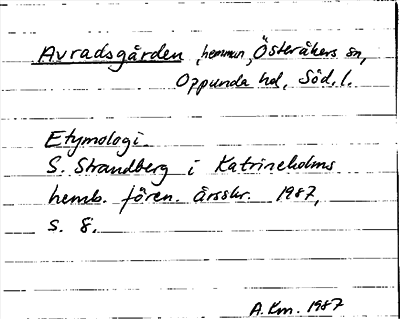 Avradsgården, hemman, Österåkers sn,
Oppunda hd, Söd. l.
Etymologi
S. Strandberg i Katrineholms
hemb. fören. årsskr. 1987,
s. 8.
A.Km. 1987